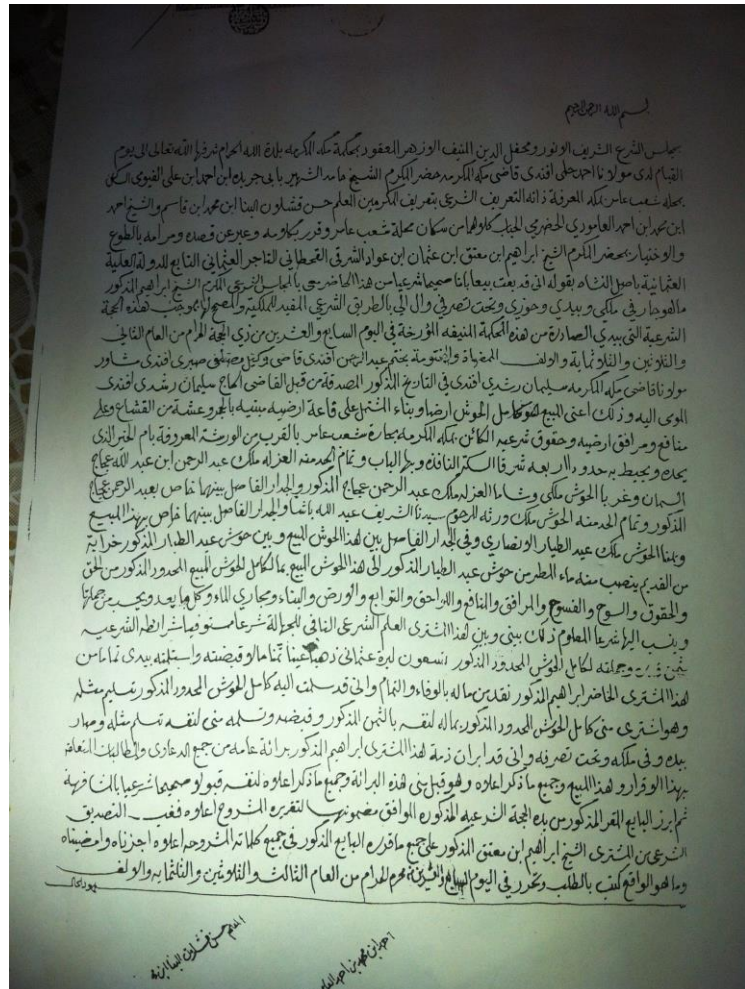 بسم الله الرحمن الرحيم
بمجلس الشرع الشريف الانور ومحفل الدين المنيف الازهر المعقود بمحكمة مكة المكرمه بلدة الله الحرام شرفها الله تعالى الى يوم
القيام لدى مولانا احمد حلمي افندى قاضى مكة المكرمه حضر المكرم الشيخ حامد الشهير بابى جريده ابن احمد ابن على الفيومى الساكن
بمحلة شعب عامر بمكه المعرفة ذاته التعريف الشرعى بتعريف المكرمين المعلم حسن قشلون البنا ابن محمد ابن قاسم والشيخ احمد
ابن محمد ابن احمد العامودي الحضرمي كلاهما من سكان محلة شعب عامر وقرر بكلامه وعبر عن قصده ومرامه بالطوع
والاختيار بمحضر المكرم الشيخ ابراهيم ابن معتق ابن عثمان ابن عواد الشرقى القحطانى التاجر العثمانى التابع للدولة العلية
العثمانية باصل النشاه بقوله انى قد بعت بيعا باتا صحيحا شرعيا من هذا الحاضر معي بالمجلس الشرعي المكرم الشيخ ابراهيم المذكور
ما هو جار في ملكى وبيدي وحوزي وتحت تصرفي وآل الي بالطريق الشرعي المفيد للملكية والمصحح بموجب هذه الحجة
الشرعية التى بيدي الصادرة من هذه المحكمة المنيفه المؤرخة في اليوم السابع والعشرين من ذي الحجة الحرام من العام الثانى
والثلاثين والثلاثماية والالف الممضاة والمختومة بختم عبد الرحمن افندى قاضى وكيل صبرى افندى مشاور
مولانا قاضى مكة المكرمه سليمان رشدي افندى في التاريخ المذكور المصدقة من قبل القاضى الحاج سليمان رشدى افندى
المومى اليه وذلك اعنى المبيع هو كامل الحوش ارضا وبناء المشتمل على قاعة ارضيه مبنيه بالحجر وعشة من القشاع وعلى
منافع ومرافق ارضيه وحقوق شرعيه الكائن بمكة المكرمه بحارة شعب عامر بالقرب من الورشة المعروفة الذى
يحده ويحيط به حدود اربعه شرقا السكة النافذة وبها الباب وتمام الحد منه العزله ملك عبد الرحمن ابن عبد الله عجاج
السمان وغربا الحوش ملكى وشاما العزله ملك عبد الرحمن عجاج المذكور والجدار الفاصل بينهما خاص بعبد الرحمن عجاج
المذكور وتمام الحد منه الحوش ملك ورثة المرحوم سيدنا الشريف عبد الله باشا والجدار الفاصل بينهما خاص بهذا المبيع
ويمنا الحوش ملك عبد الطيار الانصاري وفي الجدار الفاصل بين هذا الحوش المبيع وبين حوش عبد الطيار المذكور
من القديم ينصب منه ماء المطر من حوش عبد الطيار المذكور الى هذا الحوش المبيع بما لكامل الحوش المبيع المحدود المذكور من الحق
والحقوق والسوح والفسوح والمرافق والمنافع واللواحق والتوابع والارض والبناء ومجاري الماء وكل ما يعد ويحسب من جملتها
وينسب اليها شرعا المعلوم ذلك بينى وبين هذا المشترى العلم الشرعى النافى للجهالة شرعا مستوفيا شرائطه الشرعيه
بثمن قدره وجملته لكامل الحوش المحدود المذكور تسعون ليرة عثمانى ذهبا عينا ثمنا حالا وقبضته واستلمته بيدى تماما من
هذا المشترى الحاضر ابراهيم المذكور نقد من ماله بالوفاء والتمام وانى قد سلمت اليه كامل الحوش المحدود المذكور تسليم مثله
وهو اشترى منى كامل الحوش المحدود المذكور بماله لنفسه بالثمن المذكور وقبضه وتسلمه منى لنفسه تسلم مثله وصار
بيده وفي ملكه وتحت تصرفه وانى قد ابرأت ذمة هذا المشترى ابراهيم المذكور برائة عامه من جميع الدعاوى والمطالبات المتعلقة
بهذا الاقرار وهذا المبيع وجميع ما ذكر اعلاه وهو قبل منى هذه البرائة وجميع ما ذكر اعلاه لنفسه قبولا صحيحا شرعيا بالمشافهة
ثم ابرز البايع المقر المذكور من يده الحجة الشرعيه المذكوره الموافق مضمونها لتقريره المشروح اعلاه فغب التصديق
الشرعى من المشترى الشيخ ابراهيم ابن معتق المذكور على جميع ما قرره البايع المذكور فى جميع كلماته المشروحه اعلاه اجزناه وامضيناه
وما هو الواقع كتب بالطلب وتحرر في اليوم السابع والعشرين من محرم الحرام من العام الثالث والثلاثين والثلثمايه والالف
شهود الحال
المعلم حسن قشلون البنا ابن محمد
احمد ابن محمد بن احمد